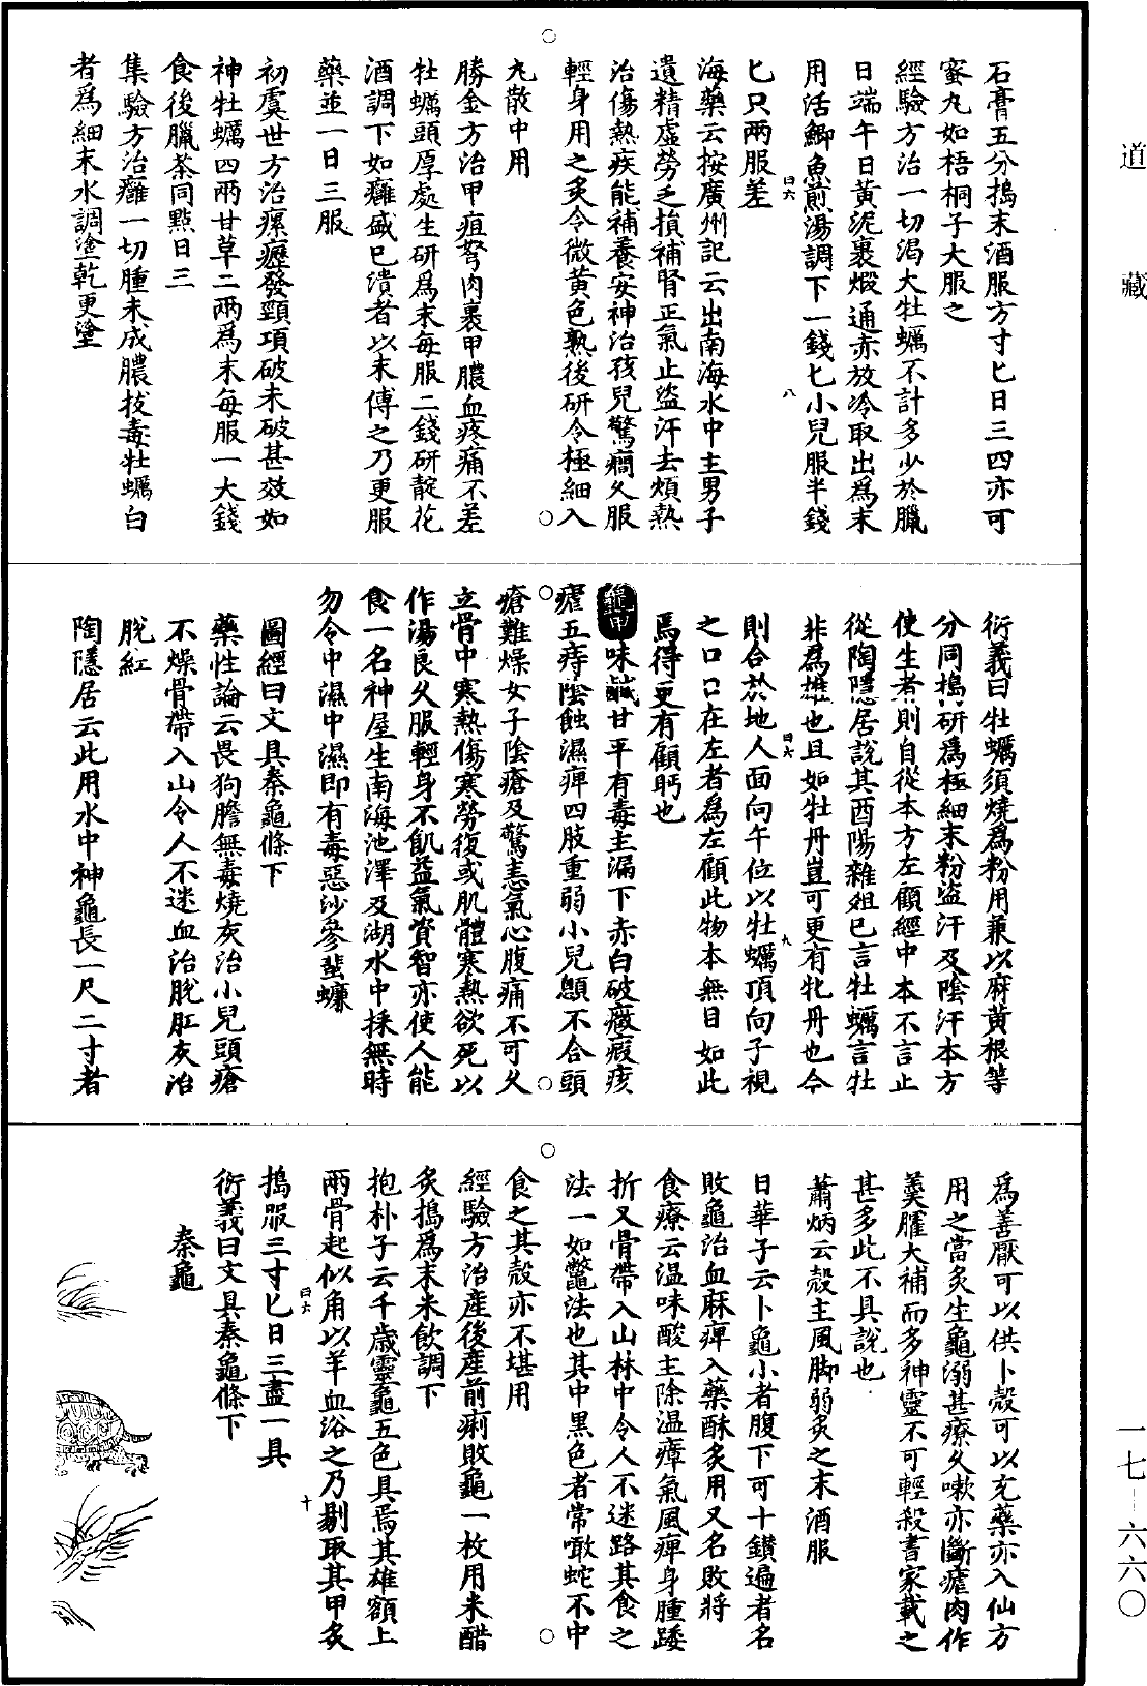 道藏
石膏五分搗末酒服方寸匕日三四亦可
蜜丸如梧桐子大服之
經驗方治一切渴大牡蠣不計多少於臘
日端午日黃泥裹煅通赤放冷取出爲末
用活鯽魚煎湯調下一錢匕小兒服半錢
匕只兩服差
海藥云按廣州記云出南海水中主男子
遺精虛勞乏損補腎正氣止盜汗去煩熱
治傷熱疾能補養安神治孩兒驚癇久服
輕身用之炙令微黃色熟後研令極細入
丸散中用
勝金方治甲疽弩肉裹甲膿血疼痛不差
牡蠣頭厚處生研爲末每服二錢研靛花
酒調下如癰盛已潰者以末傅之乃更服
藥並一日三服
初虞世方治瘰癧發頸項破未破甚效如
神牡蠣四兩甘草二兩爲末每服一大錢
食後臘茶同點日三
集驗方治癰一切腫未成膿拔毒牡蠣白
者爲細末水調塗乾更塗
曰六
八
衍義曰牡蠣須燒爲粉用兼以麻黃根等
分同搗研爲極細末粉盜汗及陰汗本方
使生者則自從本方左顧經中本不言止
從陶隱居說其酉陽雜俎已言牡蠣言牡
非爲雄也且如牡丹豈可更有牝丹也今
則合於地人面向午位以牡蠣頂向子視
之口口在左者爲左顧此物本無目如此
焉得更有顧眄也
龜甲味鹹甘平有毒主漏下赤白破癥瘕痎
瘧五痔陰蝕濕痺四肢重弱小兒顖不合頭
瘡難燥女子陰瘡及驚恚氣心腹痛不可久
立骨中寒熱傷寒勞復或肌體寒熱欲死以
作湯良久服輕身不飢益氣資智亦使人能
食一名神屋生南海池澤及湖水中採無時
勿令中濕中濕即有毒惡沙參蜚蠊
圖經曰文具秦龜條下
藥性論云畏狗膽無毒燒灰治小兒頭瘡
不燥骨帶入山令人不迷血治脫肛灰治
脫肛
陶隱居云此用水中神龜長一尺二寸者
曰六
九
爲善厭可以供卜殼可以充藥亦入仙方
用之當炙生龜溺甚療久嗽亦斷瘧肉作
羹臛大補而多神靈不可輕殺書家載之
甚多此不具說也
蕭炳云殼主風脚弱炙之末酒服
日華子云卜龜小者腹下可十鑽遍者名
敗龜治血麻痺入藥酥炙用又名敗將
食療云溫味酸主除溫瘴氣風痺身腫踒
折又骨帶入山林中令人不迷路其食之
法一如鼈法也其中黑色者常噉蛇不中
食之其殼亦不堪用
經驗方治產後產前痢敗龜一枚用米醋
炙搗爲末米飲調下
抱朴子云千歲靈龜五色具焉其雄額上
兩骨起似角以羊血浴之乃剔取其甲炙
搗服三寸匕日三盡一具
衍義曰文具秦龜條下
秦龜
曰六
十
一七—六六〇